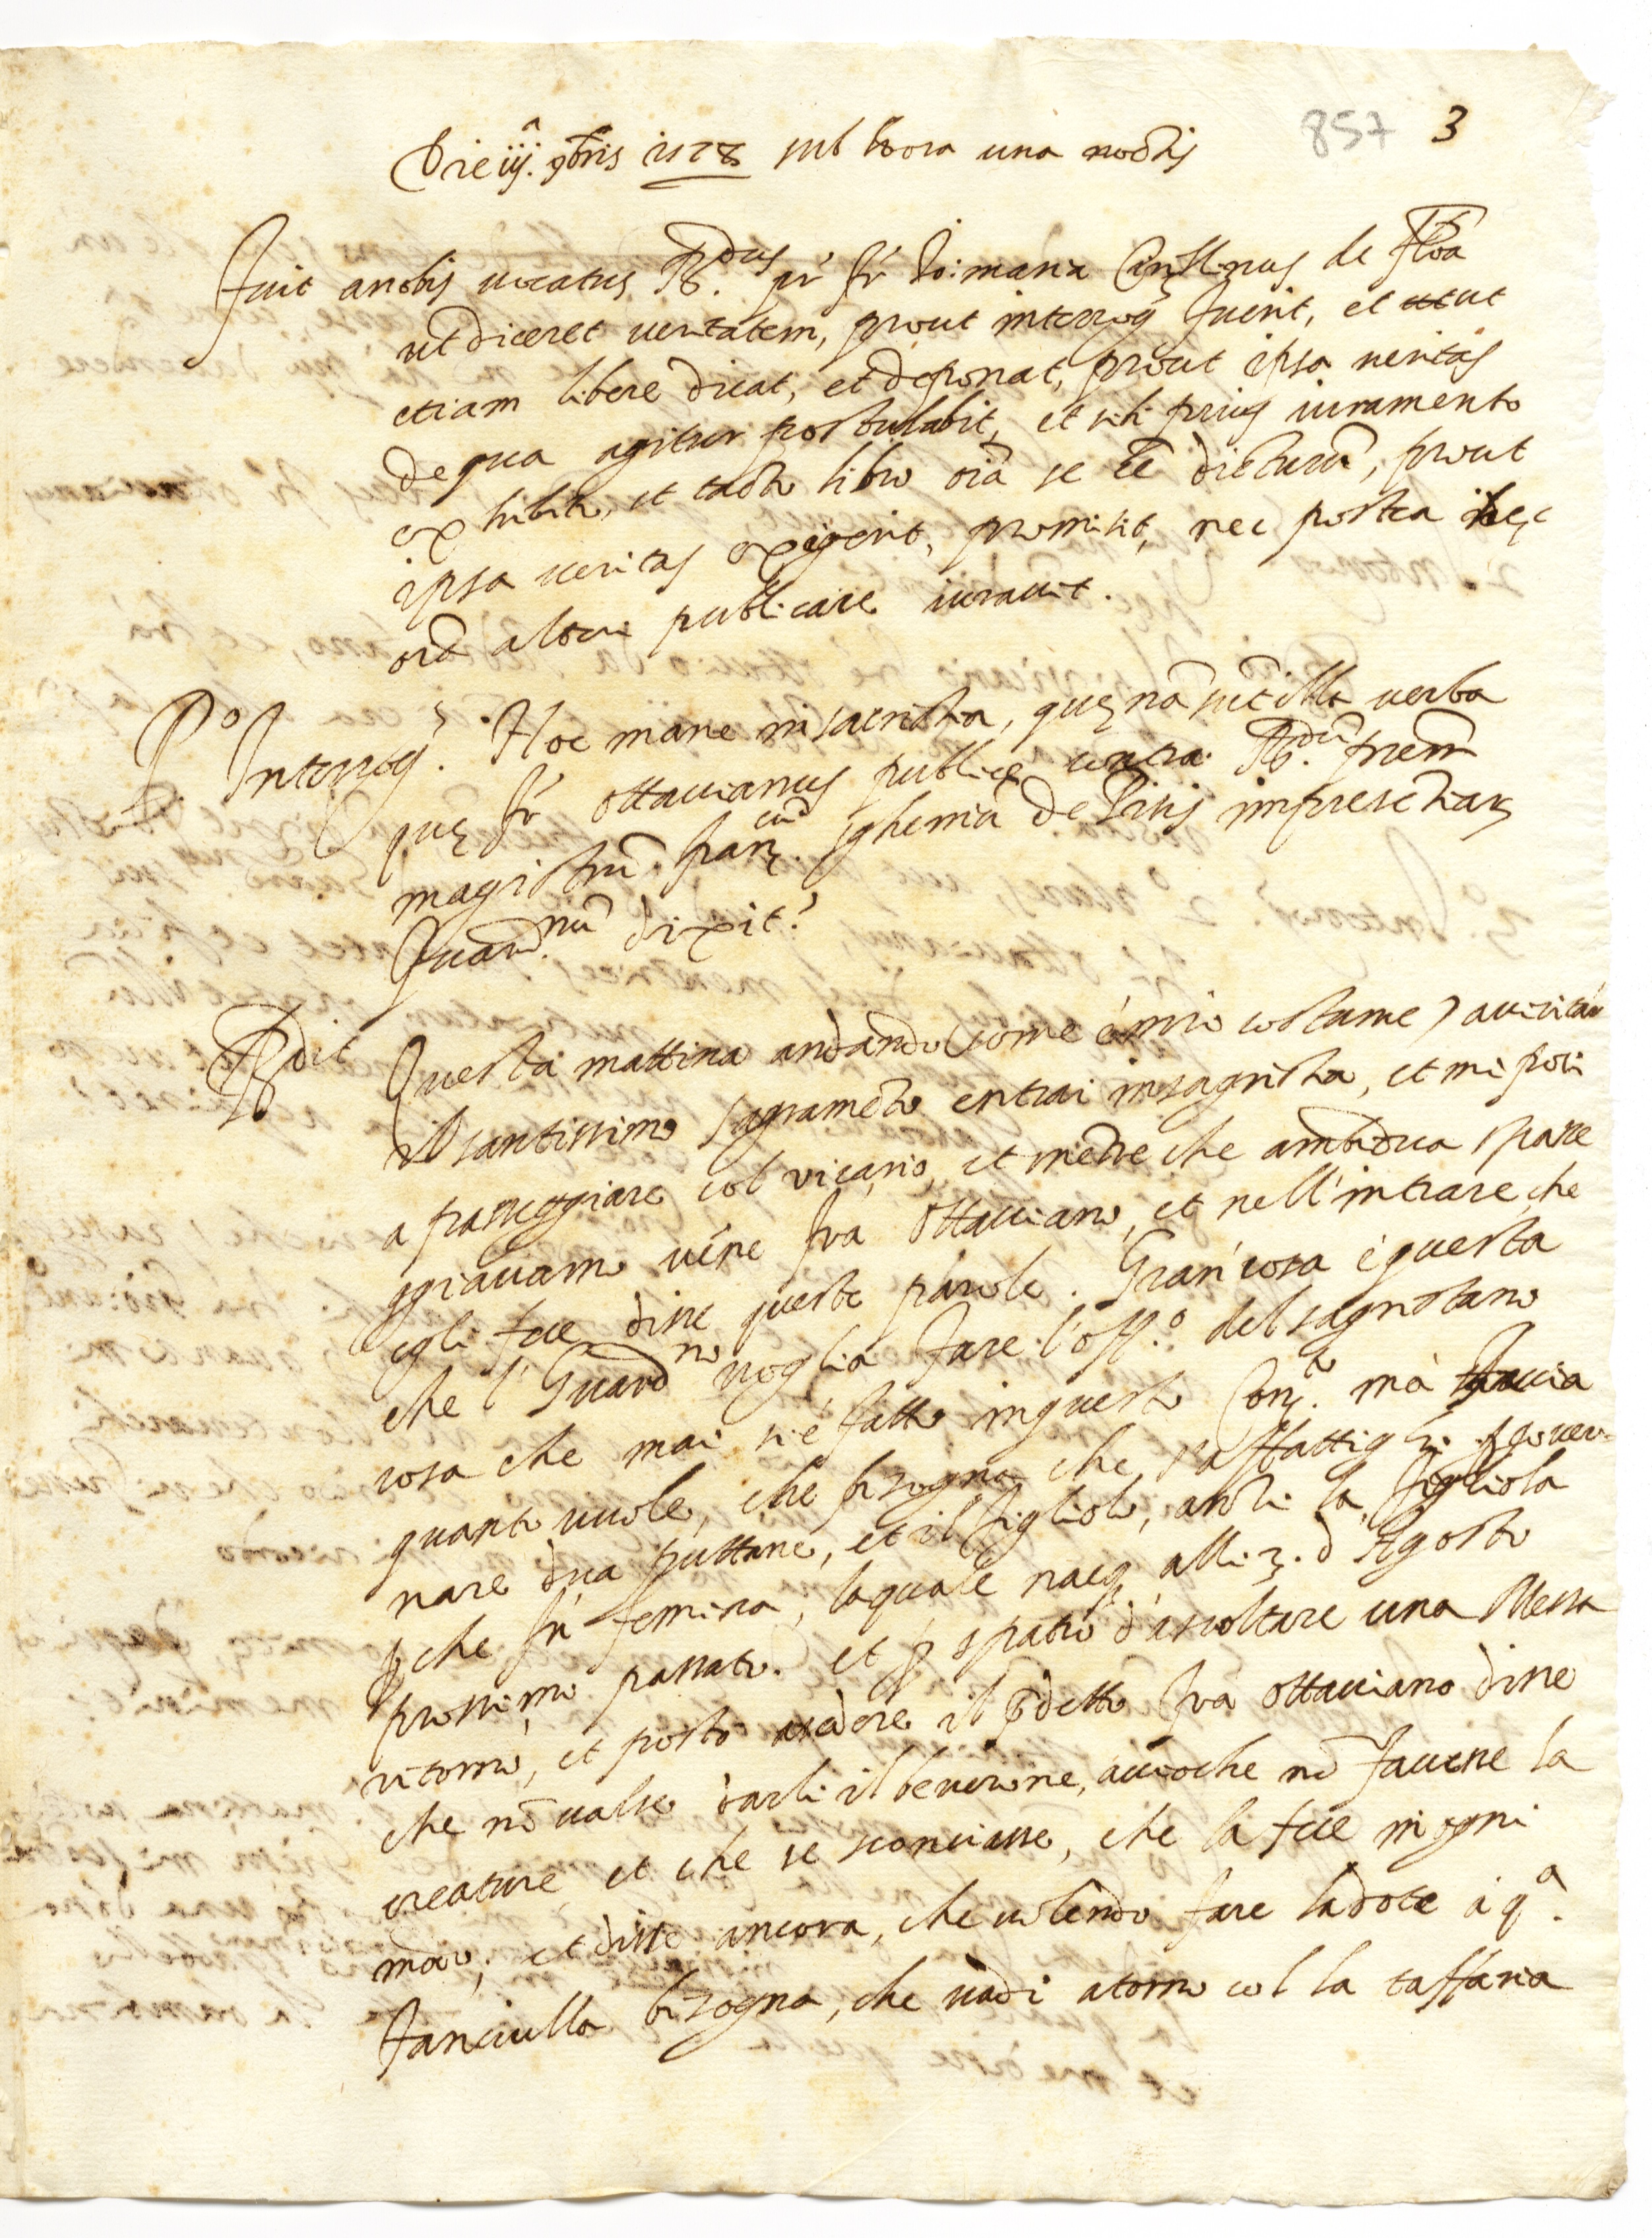 857 3
Die iij.ª 9bris 1578 sub hora una noctis
Fuit a nobis vocatus R.dus pr̃ fr̃ Io: maria de Flõa
ut diceret veritatem, prout interrog fuerit, et ut
etiam libere dicat, et deponat, prout ipsa veritas
de qua agitur postulabit, et sibi prius iuramento
exhibito, et tacto libro oĩa se eẽ dicturũ, prout
ipsa veritas exigerit, promisit, nec postea hęc
oĩa alteri publicare iuravit.
P.º Interrog. Hoc mane in sacristia, quęnã sint illa verba
quę fr̃ ottavianus publicę contra R.dũ prem̃
magistrũ franc.cũ ghemã de Pisis impresentiar̃
Guard.nũ dixit?
R.dit Questa mattina andando (come é mio costume) a visitar
il santissimo sagramẽto entrai in sagristia, et mi posi
a passeggiare col vicario, et mẽtre che ambidua passe
ggiavamo vẽne fra Ottaviano, et nell'intrare, che
egli fece disse queste parole. Gran cosa é questa
che l'Guard.no voglia fare l'off.º del sagrestano
cosa che mai si é fatta in questo Con.to mà faccia
quanto vuole, che bisogna che s'affattighi ꝑ gover-
nare dua puttane, et il figliolo, anzi la figliola
ꝑche fu femina, la quale nacq alli 3. d'Agosto
prossimo passato. et ꝑ spatio d'ascoltare una Messa
ritornò, et posto a sedere il p̃detto fra ottaviano disse
che nõ valse darli il beverone, accioche nõ facesse la
creature, et che se sconciasse, che la fece in ogni
modo; et disse ancora, che volendo fare la dote à q.ª
fanciulla bisogna, che vadi atorno col la taffaria